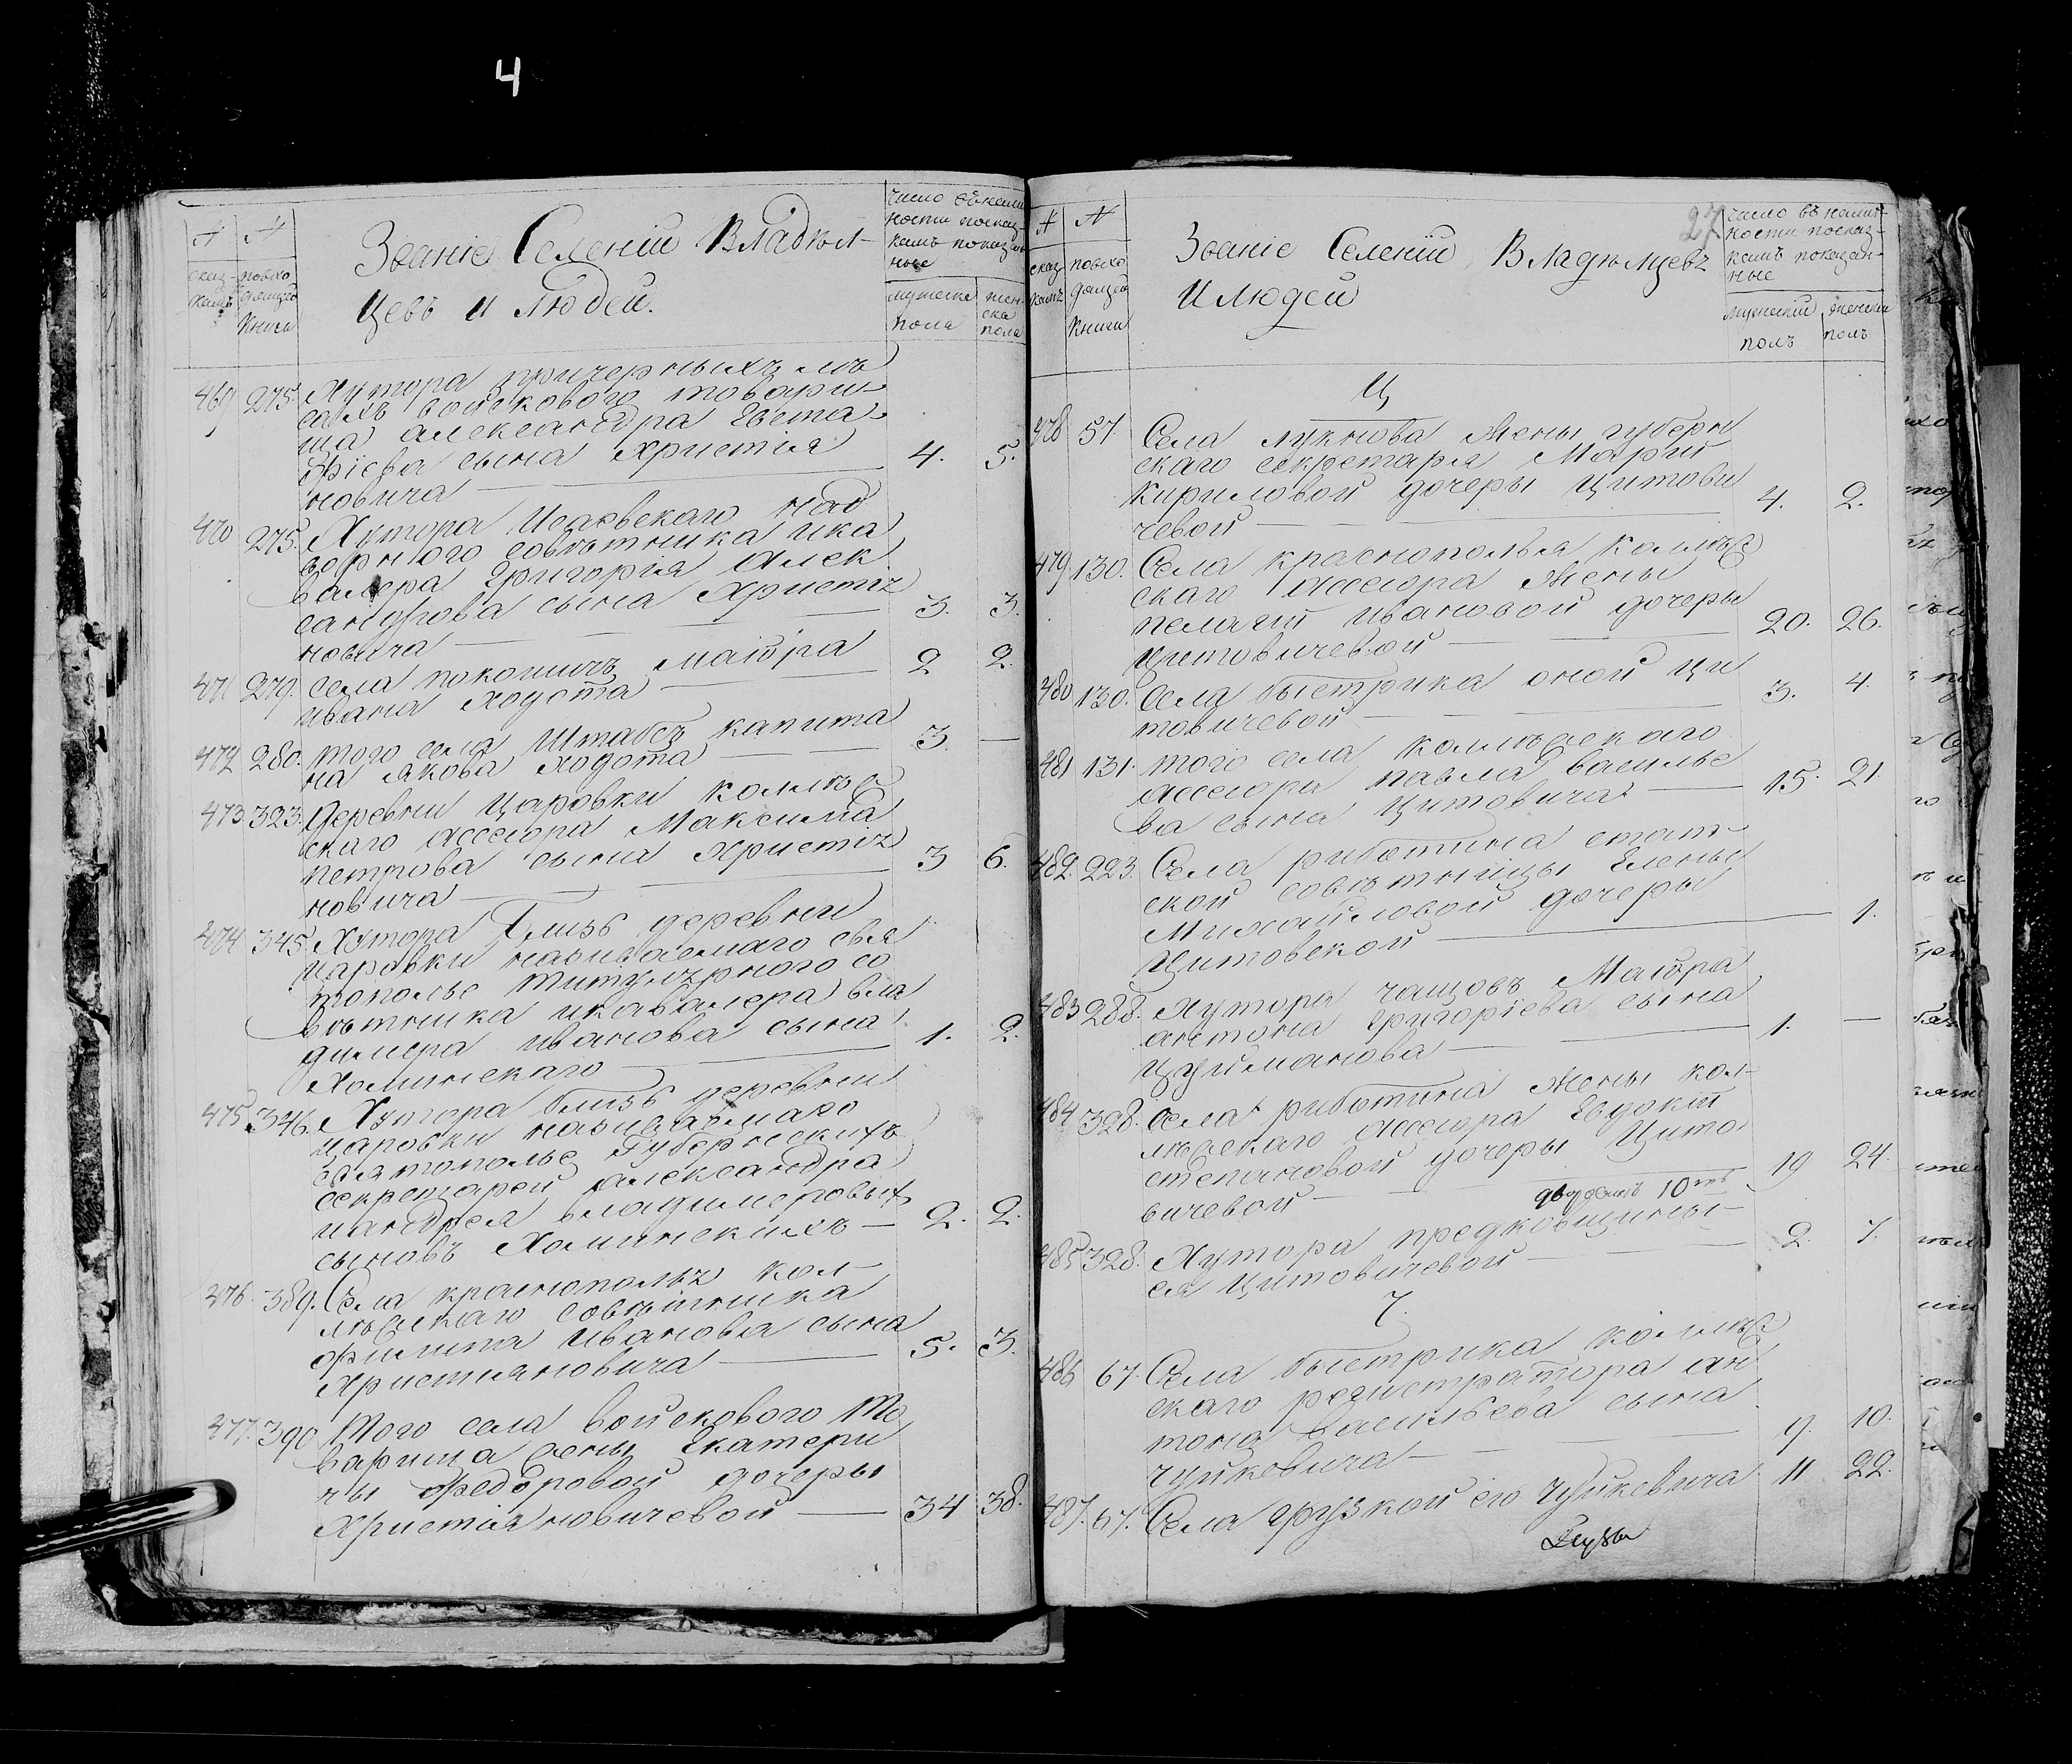 4
№ сказкамъ
№ по входящей книги
Званіе Селеній Владѣл-
цевъ и Людей.
число въ налич
ности по сказ-
камъ показан
ные
мужеска пола
женска пола
469 275. Хутора при черныхъ лѣ
сахъ войскового товари-
ща александра Евста-
фіева сына Христія
новича — 4. 5.
470 275. Хутора Исаевскаго над
ворного совѣтника и ка
валера Григорія Алек
сандрова сына Христія
новича — 3. 3.
471 279. села покошичъ маіора
ивана ходота — 2 2.
472 280. того села Штабсъ капита
на якова ходота — 3. —
473 323. Деревни Царовки коллѣж
скаго ассесора Максима
петрова сына Христія
новича — 3 6.
474 345. Хутора близъ деревни
царовки називаемаго свя
тополье титулярного со
вѣтника и кавалера вла
димера иванова сына
Холминскаго — 1. 2.
475 346. Хутора близъ деревни
царовки називаемаго
святополье Губернскихъ
секретарей александра
и андрея владимеровых
сыновъ Холминскихъ — 2. 2.
476 389. Села краснополья кол-
лѣжскаго совѣтника
филипа Иванова сына
Християновича — 5. 3.
477. 390 Того села войскового то
варища жены Екатери
ны Федоровой дочеры
Христіяновичевой — 34 38.
27
№ сказкамъ
№ по входящей книги
Званіе Селеній Владѣлцевъ
И Людей
число въ налич-
ности по сказ-
камъ показан-
ные
мужескій полъ
женскій полъ
Ц
478 57. Села лукнова жены губерн
скаго секретаря Маріи
Кириловой дочеры Цитови
чевой — 4. 2.
479 130. Села краснополья коллѣж
скаго ассесора жены
пелагіи ивановой дочеры
Цитовичевой — 20. 26.
480 130. Села быстрика оной Ци
товичевой — 3. 4.
481 131. того села коллѣжскаго
ассесора павла василье
ва сына Цитовича — 15. 21.
482. 223. Села риботина статт
ской совѣтници Елены
Михайловой дочеры
Цитовской — 1.
483 288. Хутора чащовъ Маіора
антона григоріева сына
Цуйманова — 1. —
484 328. Села риботина жены кол-
лѣжскаго ассесора Евдокіи
степановой дочеры Цито
вичевой — 19 24.
485 328. Хутора предковщины
ея Цитовичевой — 2. 7.
Ч.
486 67. Села быстрика коллѣж
скаго регистратора ан
тона васильева сына
чуйковича — 9. 10.
487. 67. Села грузкой его чуйкевича 11 22.